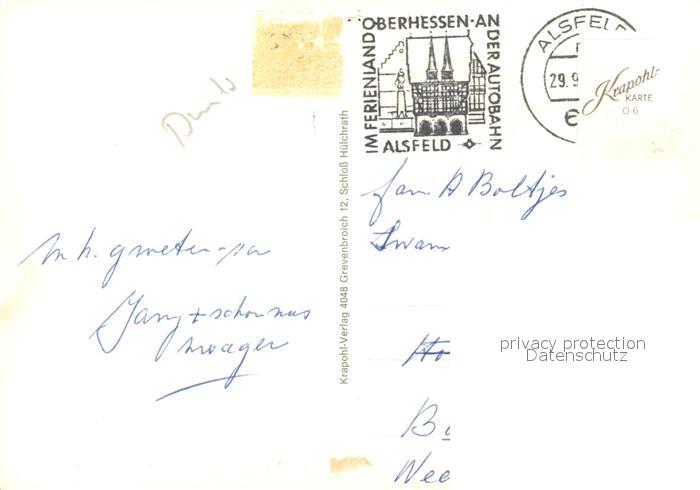 IM FERIENLAND OBERHESSEN · AN DER AUTOBAHN
ALSFELD
ALSFELD
29.9
Krapohl-
KARTE
06
Krapohl-Verlag 4048 Grevenbroich 12, Schloß Hülchrath
fam. A Boltjes
Zwan
privacy protection
Datenschutz
m h. groeten van
Jany + schoonnus
zwager
Ho
B
Nee